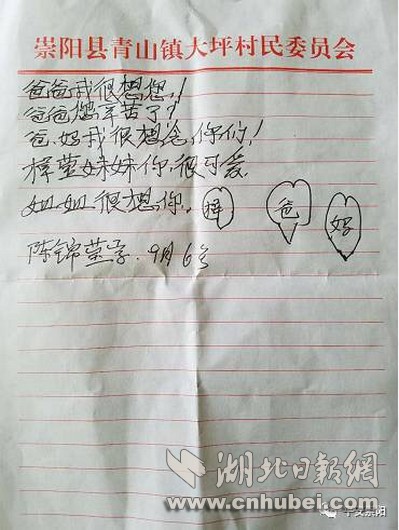 崇阳县青山镇大坪村民委员会
爸爸我很想您!
爸爸您辛苦了!
爸.妈我很想念你们!
梓莹妹妹你很可爱
姐姐很想你. 梓 爸 妈
陈锦莹写. 9月6号
湖北日報網
www.cnhubei.com
平安崇阳